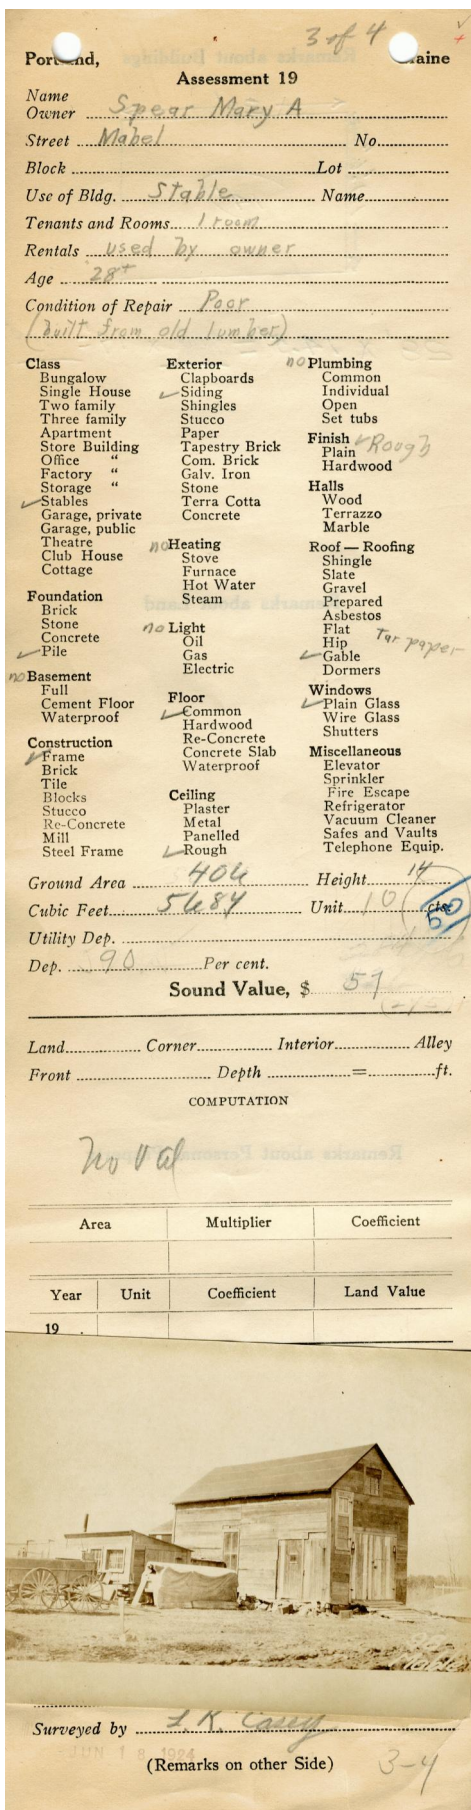 3 of 4
Portland, Maine
Assessment 19
Name
Owner Spear Mary A
Street Mabel No.
Block Lot
Use of Bldg. Stable Name
Tenants and Rooms 1 room
Rentals used by owner
Age 28+
Condition of Repair Poor
(built from old lumber)
Class
Bungalow
Single House
Two family
Three family
Apartment
Store Building
Office "
Factory "
Storage "
✓Stables
Garage, private
Garage, public
Theatre
Club House
Cottage
Foundation
Brick
Stone
Concrete
✓Pile
no Basement
Full
Cement Floor
Waterproof
Construction
✓Frame
Brick
Tile
Blocks
Stucco
Re-Concrete
Mill
Steel Frame
Exterior
Clapboards
✓Siding
Shingles
Stucco
Paper
Tapestry Brick
Com. Brick
Galv. Iron
Stone
Terra Cotta
Concrete
no Heating
Stove
Furnace
Hot Water
Steam
no Light
Oil
Gas
Electric
Floor
✓Common
Hardwood
Re-Concrete
Concrete Slab
Waterproof
Ceiling
Plaster
Metal
Panelled
✓Rough
no Plumbing
Common
Individual
Open
Set tubs
Finish ✓Rough
Plain
Hardwood
Halls
Wood
Terrazzo
Marble
Roof — Roofing
Shingle
Slate
Gravel
Prepared
Asbestos
Flat
Hip Tar paper
✓Gable
Dormers
Windows
✓Plain Glass
Wire Glass
Shutters
Miscellaneous
Elevator
Sprinkler
Fire Escape
Refrigerator
Vacuum Cleaner
Safes and Vaults
Telephone Equip.
Ground Area 406 Height 14
Cubic Feet 5684 Unit 10 cts.
50
Utility Dep.
Dep. 90 Per cent.
Sound Value, $ 57
Land Corner Interior Alley
Front Depth = ft.
COMPUTATION
No Val
Area Multiplier Coefficient
Year Unit Coefficient Land Value
19
Mabel
Surveyed by F. K. Casey
JUN 18 1924
(Remarks on other Side)
3-4